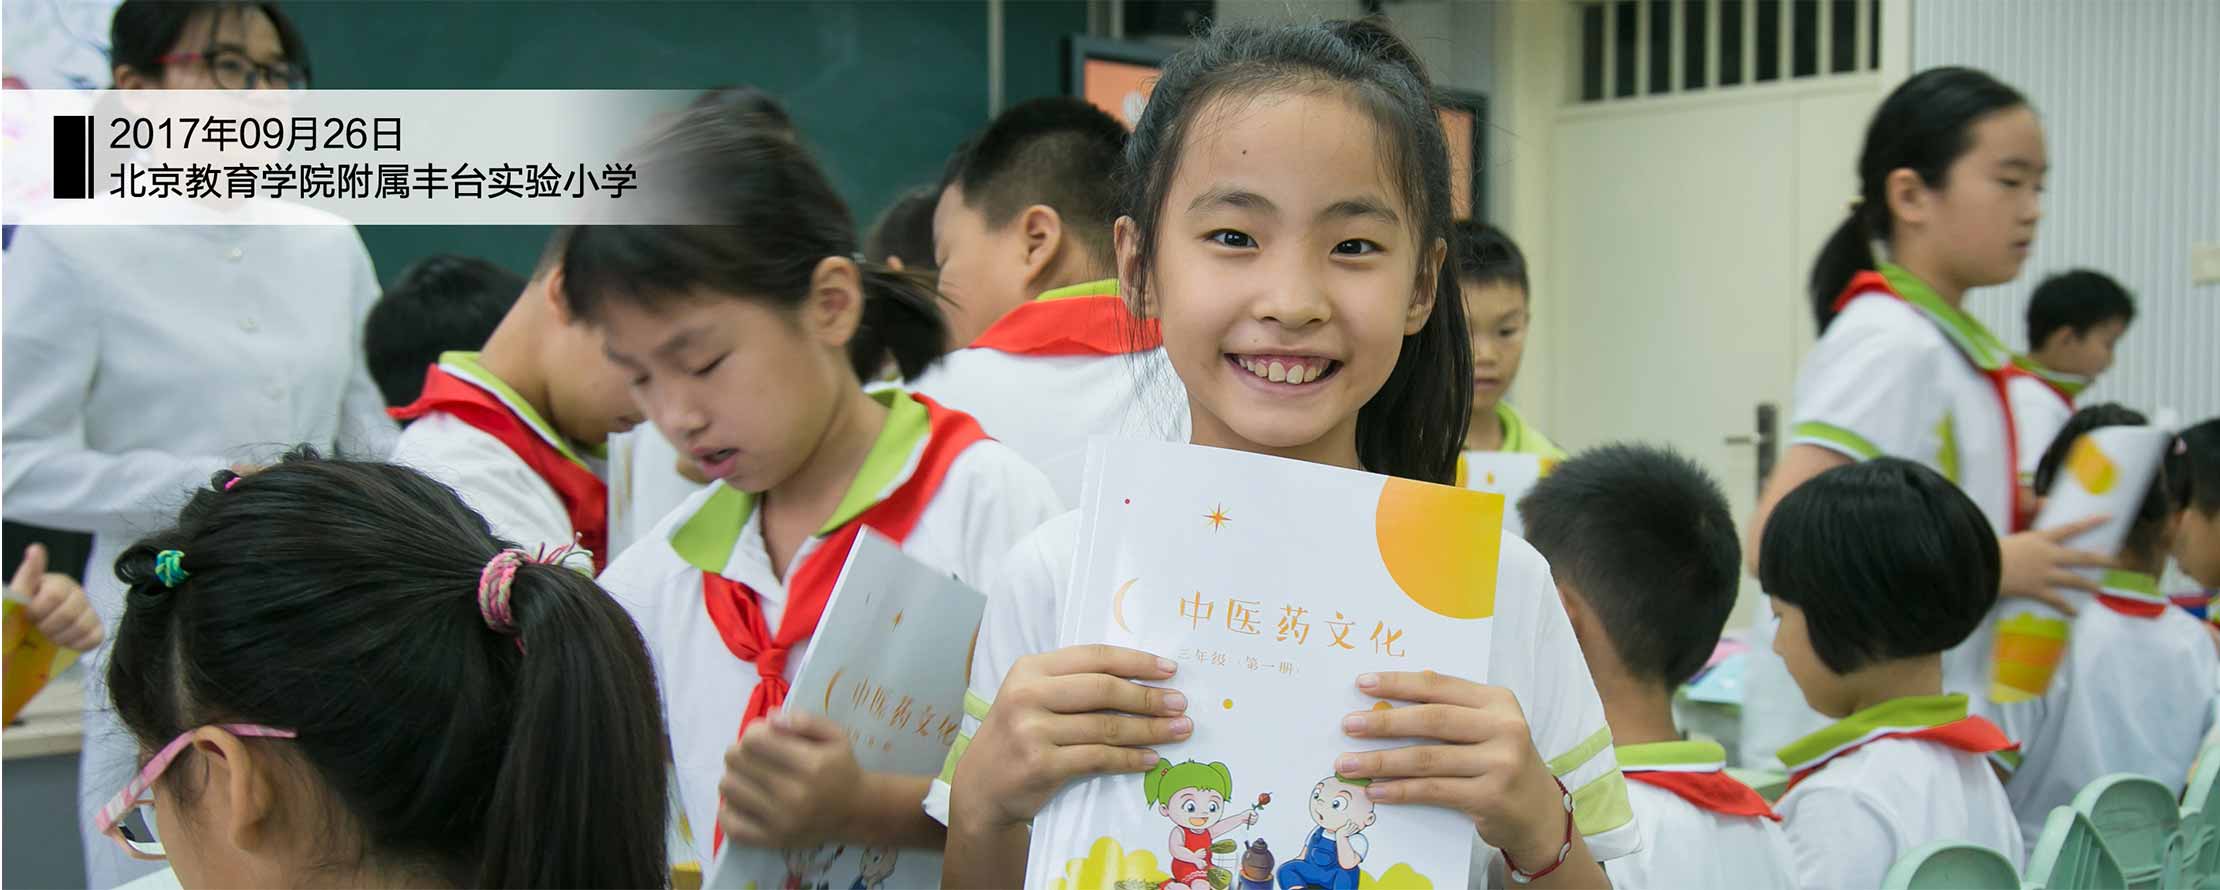 2017年09月26日
北京教育学院附属丰台实验小学
中医药文化
三年级（第一册）
中医药文化